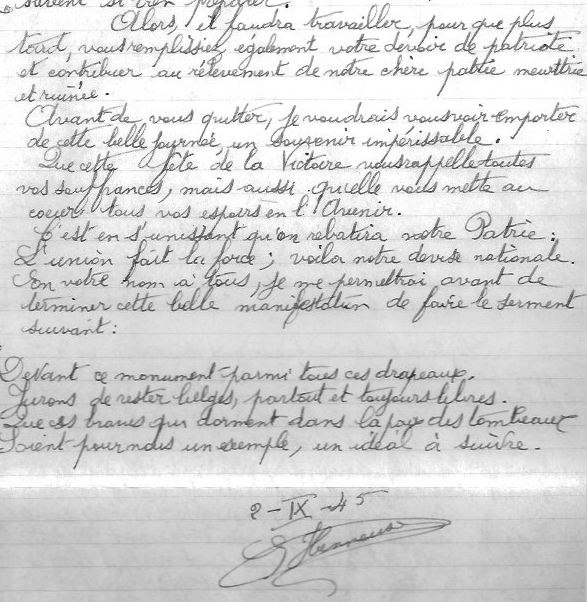 suivent si bien préparer.
Alors, il faudra travailler, pour que plus
tard, vous remplissiez également votre devoir de patriote
et contribuer au relèvement de notre chère patrie meurtrie
et ruinée.
Avant de vous quitter, je voudrais vous voir emporter
de cette belle journée, un souvenir impérissable.
Que cette fête de la Victoire vous rappelle toutes
vos souffrances, mais aussi qu'elle vous mette au
coeur tous vos espoirs en l'Avenir.
C'est en s'unissant qu'on rebatira notre Patrie :
L'union fait la force ; voila notre devise nationale.
En votre nom à tous, je me permettrai avant de
terminer cette belle manifestation de faire le serment
suivant :
Devant ce monument parmi tous ces drapeaux.
Jurons de rester belges, partout et toujours libres.
Que ces braves qui dorment dans la paix des tombeaux
Soient pour nous un exemple, un idéal à suivre.
2-IX-45